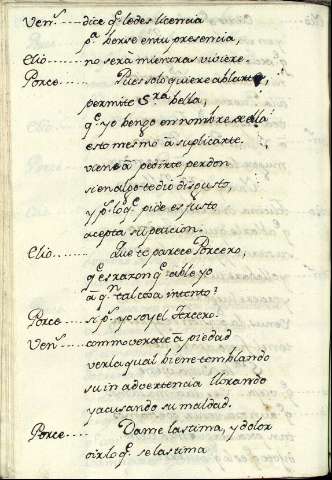 Venˢ.......dice q̃ le des licencia
pᵃ berse en tu presencia,
Clio.......no serà mientras viviere.
Porce.......Pues solo quiere ablarte,
permite Sʳᵃ bella,
q̃ yo bengo en nombre de ella
esto mesmo à suplicarte.
viene à pedirte perdon
si en algo te dio disgusto,
y pʳ lo q̃ pide es justo
acepta su peticion.
Clio.......Que te parece Porcero,
q̃ es razon q̃ able yo
à qⁿ tal cosa intentò?
Porce.......si pʳ yo soy el tercero.
Venˢ.......commoverate à piedad
verla qual biene temblando
su inadvertencia llorando
y acusando su maldad.
Porce.......Dame lastima, y dolor
oirlo q̃ se lastima